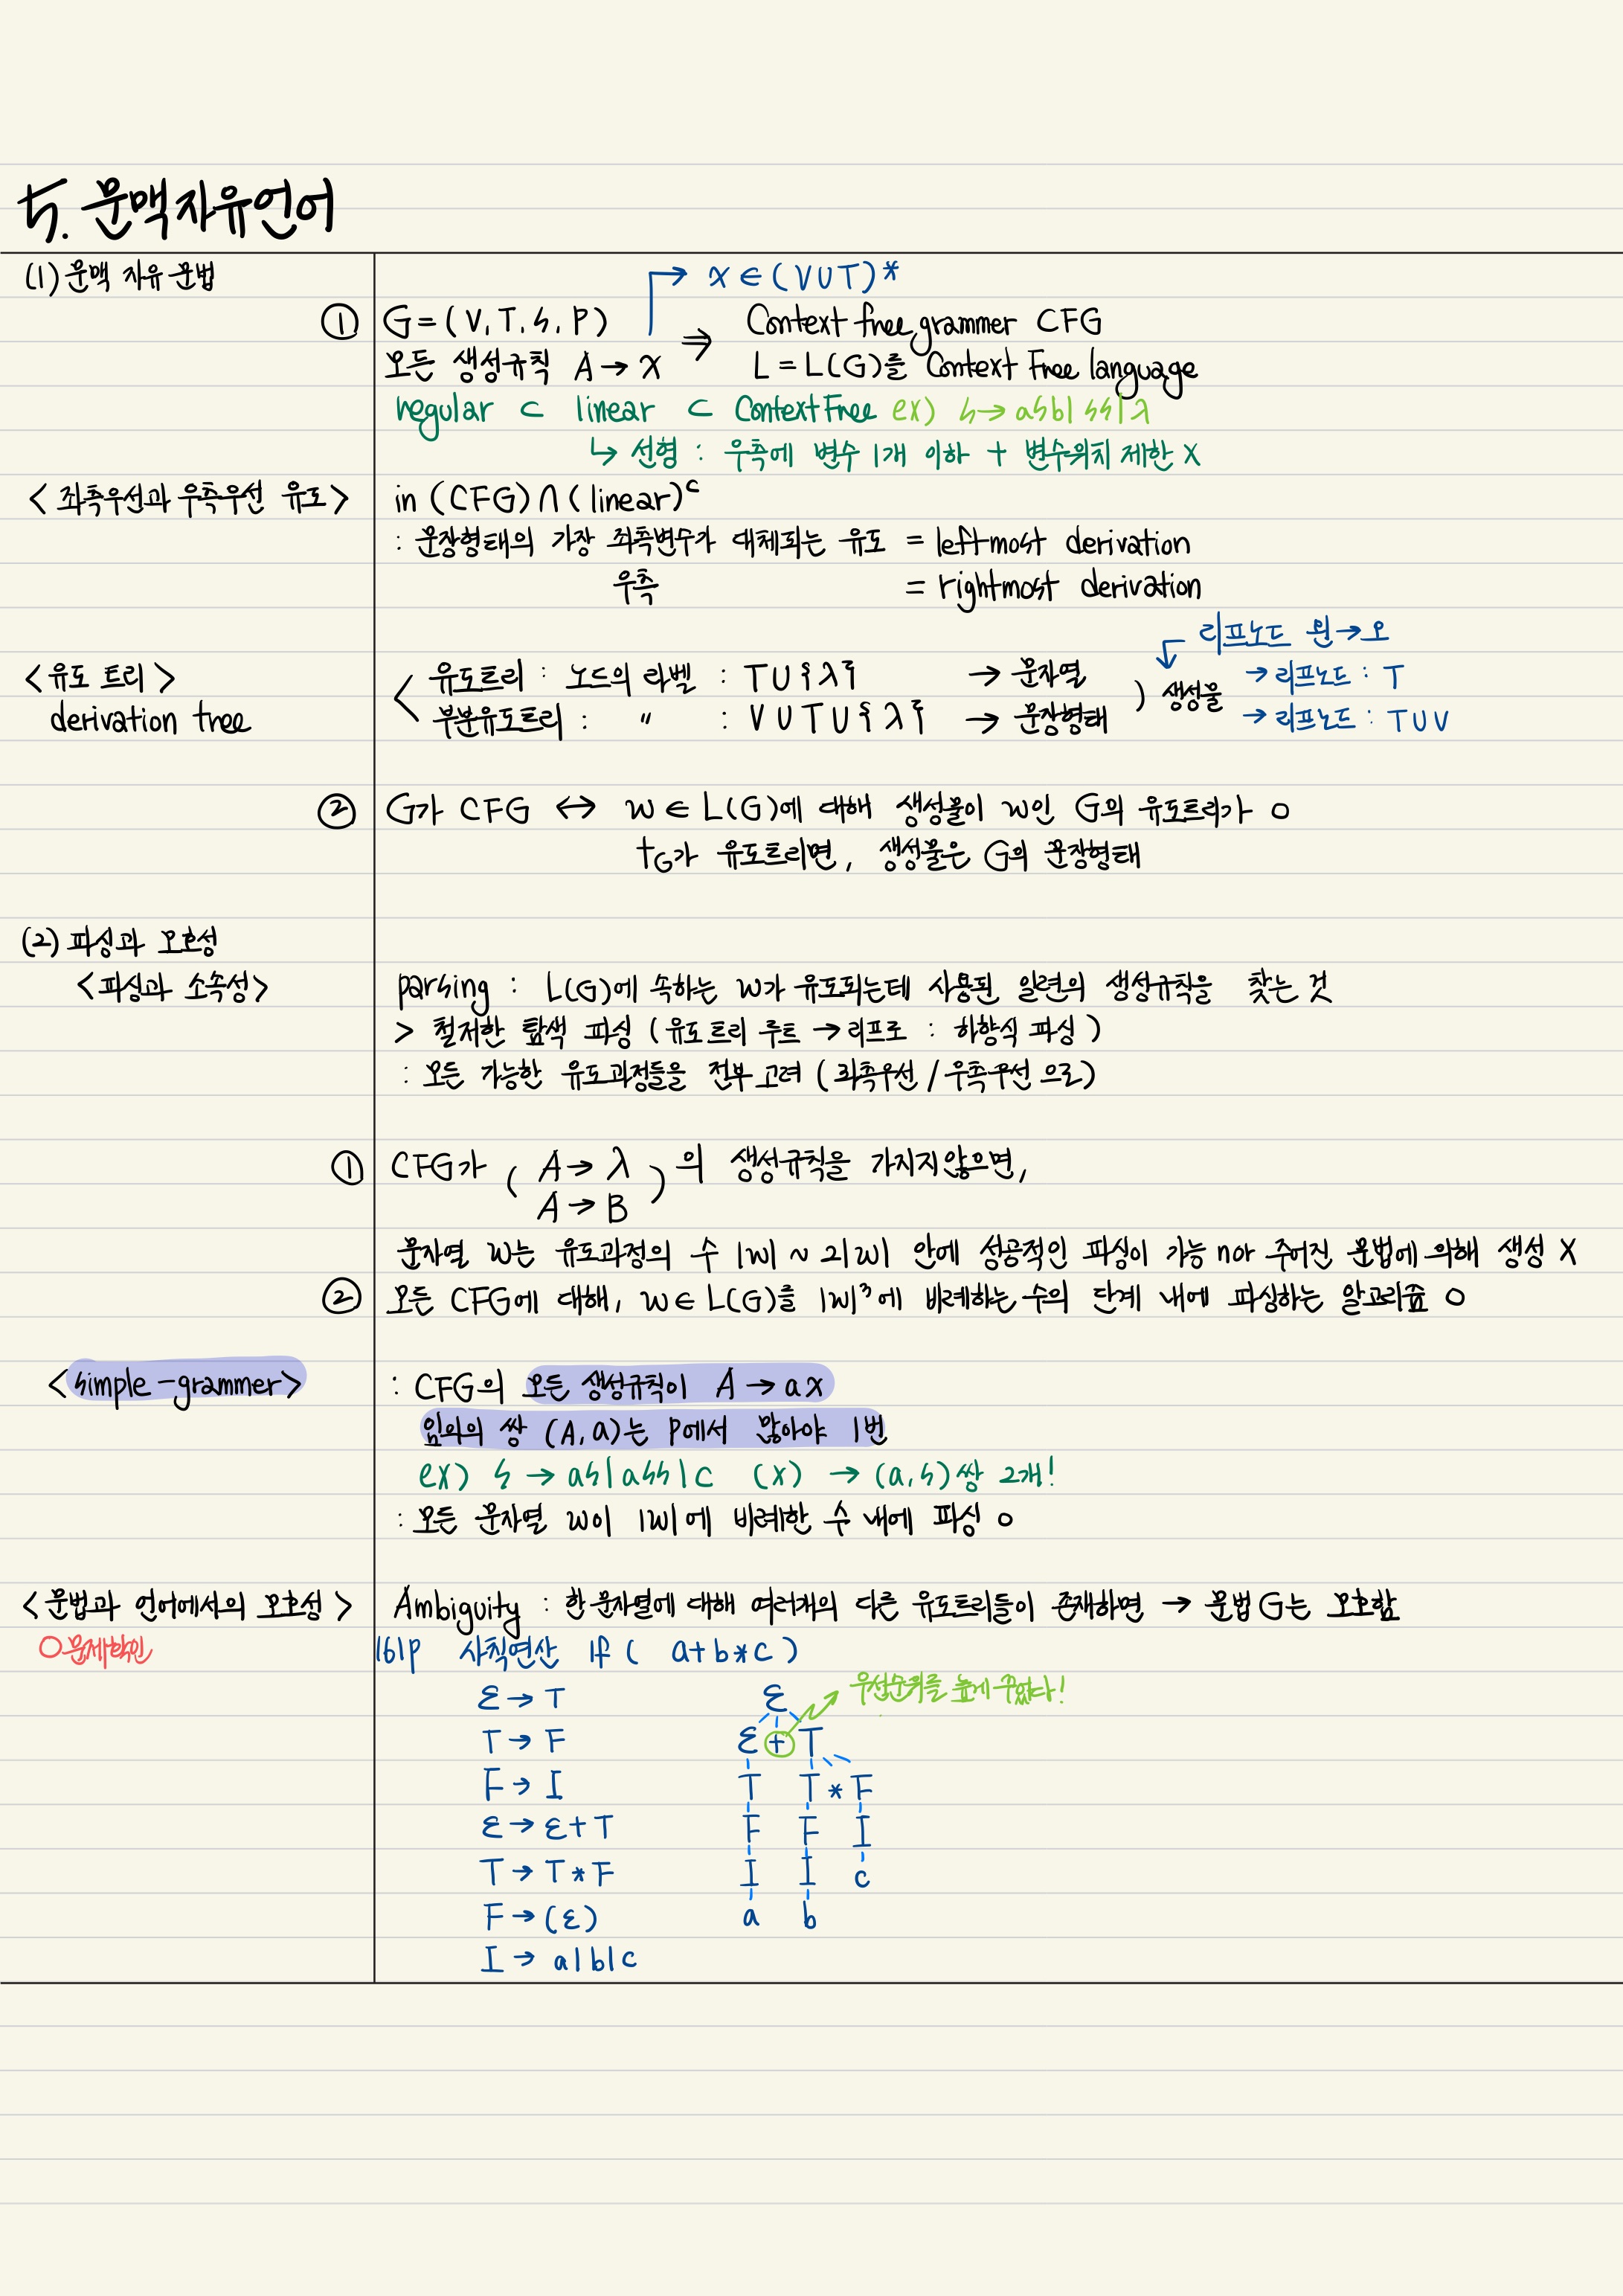 5. 문맥자유언어
(1) 문맥 자유 문법
→ x ∈ (V∪T)*
① G = (V, T, S, P) ⇒ Context free grammer CFG
모든 생성규칙 A → x L = L(G)를 Context Free language
regular ⊂ linear ⊂ Context Free ex) S → aSb | SS | λ
↳ 선형 : 우측에 변수 1개 이하 + 변수위치 제한 X
< 좌측우선과 우측우선 유도 > in (CFG) ∩ (linear)ᶜ
: 문장형태의 가장 좌측변수가 대체되는 유도 = leftmost derivation
우측 = rightmost derivation
리프노드 왼 → 오
< 유도 트리 > < 유도트리 : 노드의 라벨 : T∪{λ} → 문자열 ) 생성물 → 리프노드 : T
derivation tree 부분유도트리 : 〃 : V∪T∪{λ} → 문장형태 → 리프노드 : T∪V
② G가 CFG ↔ w ∈ L(G)에 대해 생성물이 w인 G의 유도트리가 O
t_G가 유도트리면, 생성물은 G의 문장형태
(2) 파싱과 모호성
< 파싱과 소속성 > parsing : L(G)에 속하는 w가 유도되는데 사용된 일련의 생성규칙을 찾는 것
> 철저한 탐색 파싱 (유도트리 루트 → 리프로 : 하향식 파싱)
: 모든 가능한 유도과정들을 전부 고려 (좌측우선 / 우측우선 으로)
① CFG가 ( A → λ ) 의 생성규칙을 가지지않으면,
A → B
문자열 w는 유도과정의 수 |w| ~ 2|w| 안에 성공적인 파싱이 가능 nor 주어진 문법에 의해 생성 X
② 모든 CFG에 대해, w ∈ L(G)를 |w|³에 비례하는 수의 단계 내에 파싱하는 알고리즘 O
< simple - grammer > : CFG의 모든 생성규칙이 A → ax
임의의 쌍 (A, a)는 P에서 많아야 1번
ex) S → aS | aSS | c (X) → (a, S)쌍 2개!
: 모든 문자열 w이 |w|에 비례한 수 내에 파싱 O
< 문법과 언어에서의 모호성 > Ambiguity : 한 문자열에 대해 여러개의 다른 유도트리들이 존재하면 → 문법 G는 모호함
○문제확인 161p 사칙연산 If ( a+b*c )
우선순위를 높게 주었다!
E → T E
T → F E + T
F → I T T * F
E → E + T F F I
T → T * F I I c
F → (E) a b
I → a | b | c